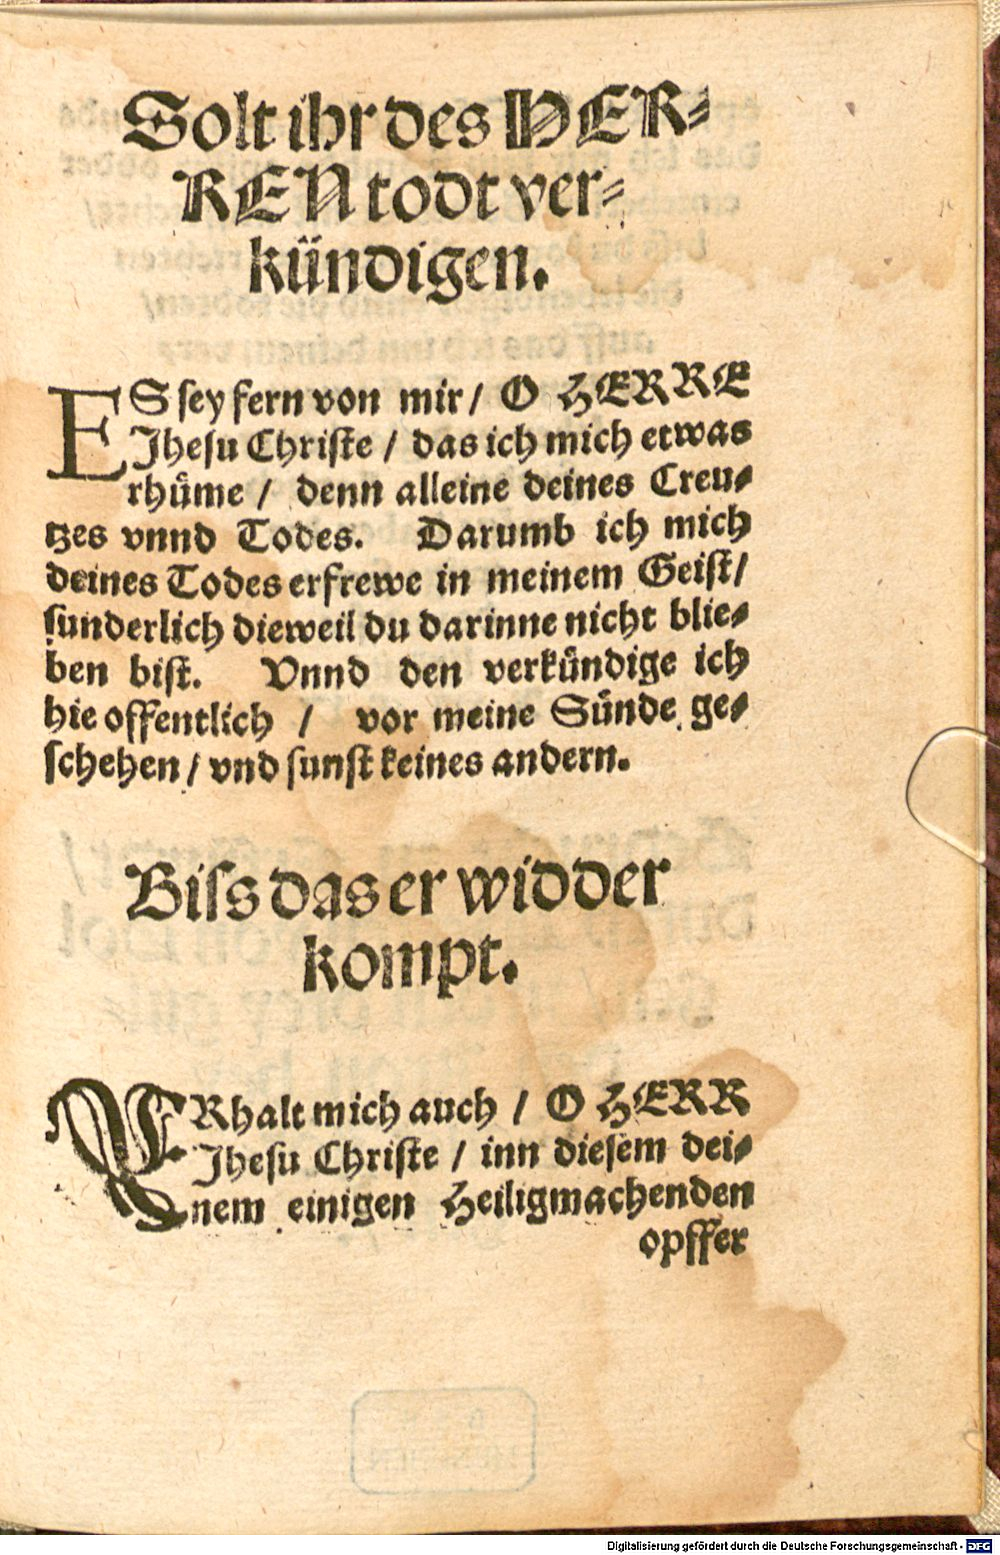 Solt ihr des HER-
REN todt ver-
kündigen.
ES sey fern von mir / O HERRE
Jhesu Christe / das ich mich etwas
rhüme / denn alleine deines Creu-
tzes vnnd Todes. Darumb ich mich
deines Todes erfrewe in meinem Geist /
sunderlich dieweil du darinne nicht blie-
ben bist. Vnnd den verkündige ich
hie offentlich / vor meine Sünde ge-
schehen / vnd sunst keines andern.
Biss das er widder
kompt.
ERhalt mich auch / O HERR
Jhesu Christe / inn diesem dei-
nem einigen Heiligmachenden
opffer
Digitalisierung gefördert durch die Deutsche Forschungsgemeinschaft - DFG